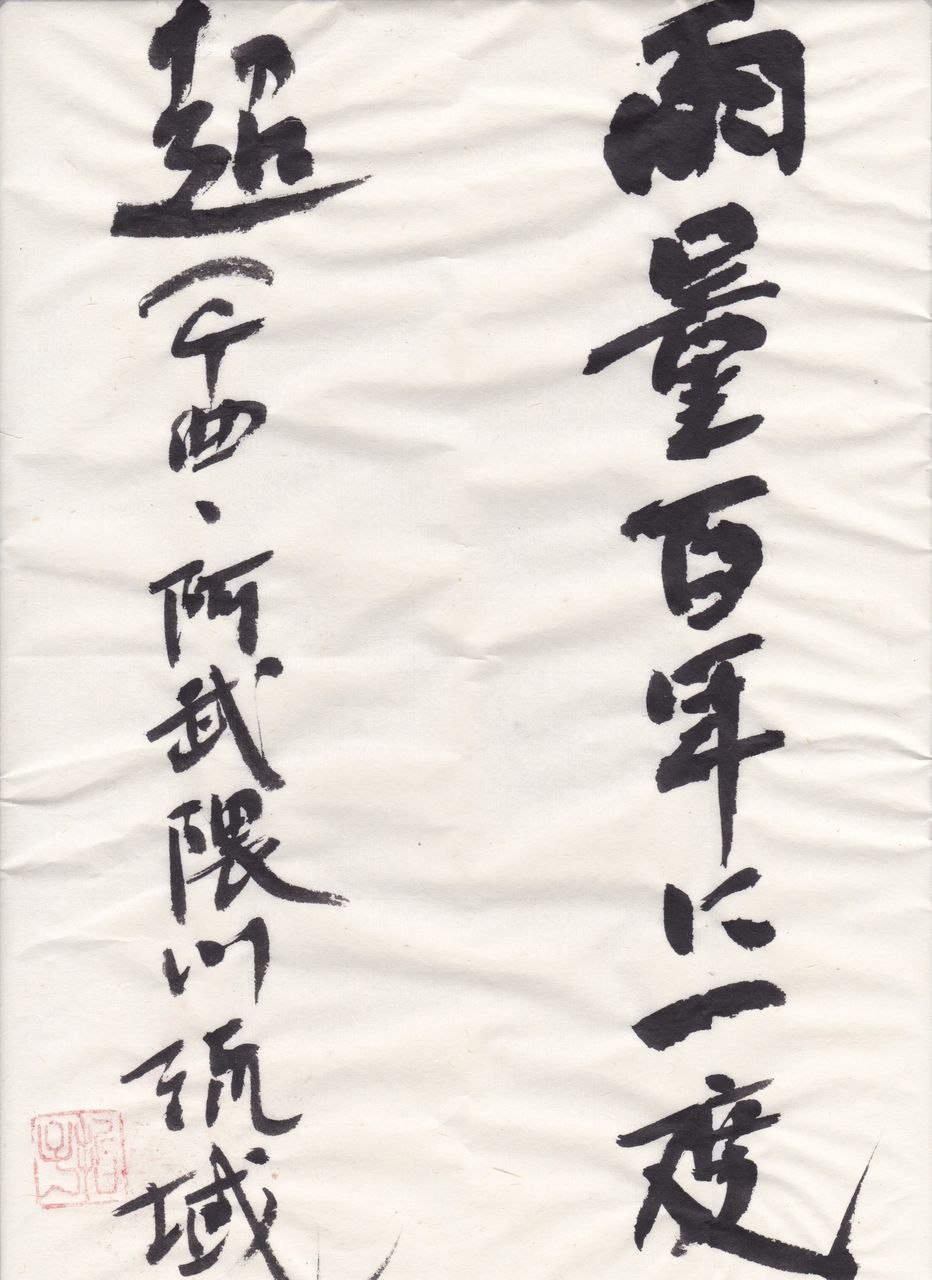 雨量百年に一度
超(千曲・阿武隈川流域